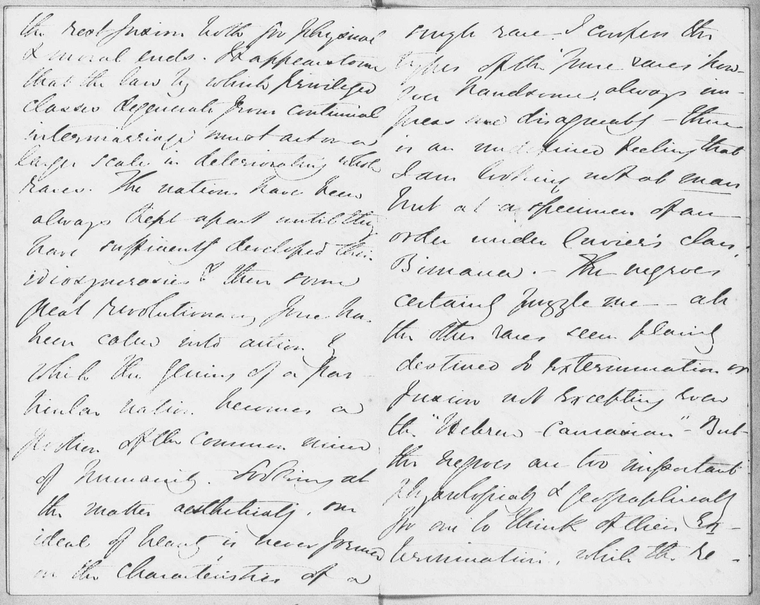 the rest fusion both for physical
& moral ends. It appears to me
that the law by which privileged
classes degenerate from continual
intermarriage must act on a
larger scale in deteriorating whole
races. The nations have been
always kept apart until they
have sufficiently developed their
idiosyncrasies & then some
great revolutionary force has
been called into action by
which the genius of a par-
ticular nation becomes a
portion of the common mind
of humanity. Looking at
the matter aesthetically, our
ideal of beauty is never formed
on the characteristics of a
single race. I confess the
types of the pure races, how-
ever handsome, always im-
press me disagreeably – there
is an undefined feeling that
I am looking not at man
but at a specimen of an
order under Cuvier's class,
Bimana. – The negroes
certainly puzzle me – all
the other races seem plainly
destined to extermination or
fusion not excepting even
the "Hebrew-Caucasian". But
the negroes are too important
physiologically & geographically
for one to think of their ex-
termination, while the re-